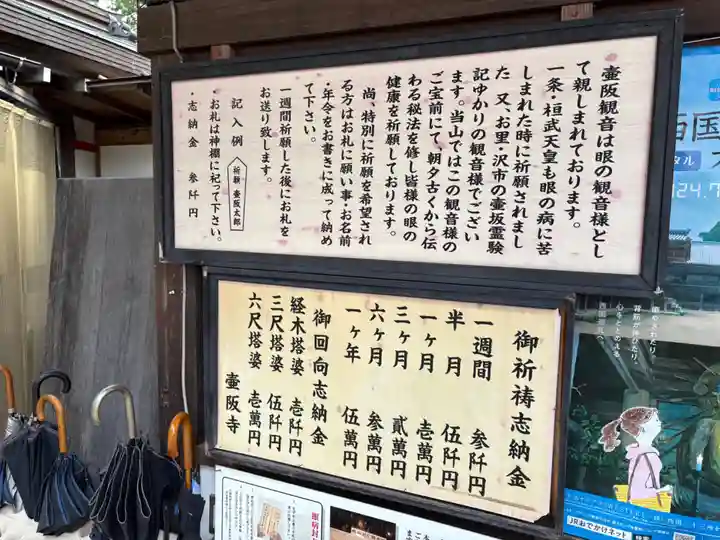 壷阪観音は眼の観音様とし
て親しまれております。
一条・桓武天皇も眼の病に苦
しまれた時に祈願されまし
た 又、お里・沢市の壷坂霊験
記ゆかりの観音様でござい
ます。当山ではこの観音様の
ご宝前にて、朝夕古くから伝
わる秘法を修し皆様の眼の
健康を祈願しております。
尚、特別に祈願を希望され
る方はお札に願い事・お名前
・年令をお書きに成って納め
て下さい。
一週間祈願した後にお札を
お送り致します。
記入例
祈願 壷阪太郎
お札は神棚に祀って下さい。
・志納金 参阡円
御祈祷志納金
一週間 参阡円
半月 伍阡円
一ヶ月 壱萬円
三ヶ月 貳萬円
六ヶ月 参萬円
一ヶ年 伍萬円
御回向志納金
経木塔婆 壱阡円
三尺塔婆 伍阡円
六尺塔婆 壱萬円
壷阪寺
西国
タル
24.7
背筋が伸びたり、
心をととのえる
JRおでかけネット